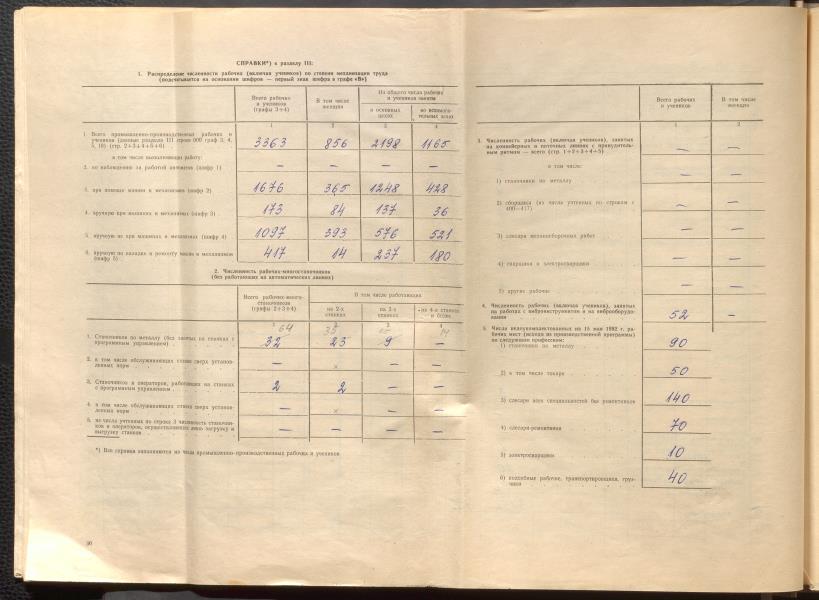 СПРАВКИ*) к разделу III:
1. Распределение численности рабочих (включая учеников) по степени механизации труда
(подсчитывается на основании шифров — первый знак шифра в графе «В»)
Всего рабочих и учеников (графы 3+4)
В том числе женщин
Из общего числа рабочих и учеников заняты
в основных цехах
во вспомогательных цехах
1 2 3 4
1. Всего промышленно-производственных рабочих и
учеников (данные раздела III строк 000 граф 3, 4,
9, 10) (стр. 2+3+4+5+6) 3363 856 2198 1165
в том числе выполняющих работу:
2. по наблюдению за работой автоматов (шифр 1) — — — —
3. при помощи машин и механизмов (шифр 2) 1676 365 1248 428
4. вручную при машинах и механизмах (шифр 3) 173 84 137 36
5. вручную не при машинах и механизмах (шифр 4) 1097 393 576 521
6. вручную по наладке и ремонту машин и механизмов
(шифр 5) 417 14 237 180
2. Численность рабочих-многостаночников
(без работающих на автоматических линиях)
Всего рабочих-многостаночников (графы 2+3+4)
В том числе работающих
на 2-х станках
на 3-х станках
на 4-х станках и более
1 2 3 4
64 14
1. Станочники по металлу (без занятых на станках с
программным управлением) 32 23 9 —
2. в том числе обслуживающих станки сверх установ-
ленных норм — × — —
3. Станочников и операторов, работающих на станках
с программным управлением 2 2 — —
4. в том числе обслуживающих станки сверх установ-
ленных норм — × — —
5. из числа учтенных по строке 3 численность станочни-
ков и операторов, осуществляющих лишь загрузку и
выгрузку станков — — — —
*) Все справки заполняются из числа промышленно-производственных рабочих и учеников
30
Всего рабочих и учеников
В том числе женщин
1 2
3. Численность рабочих (включая учеников), занятых
на конвейерных и поточных линиях с принудитель-
ным ритмом — всего (стр. 1+2+3+4+5) — —
в том числе:
1) станочники по металлу — —
2) сборщики (из числа учтенных по строкам с
400—417) — —
3) слесари механосборочных работ — —
4) сварщики и электросварщики — —
5) другие рабочие — —
4. Численность рабочих (включая учеников), занятых
на работах с виброинструментом и на виброоборудо-
вании 52 —
5. Число недоукомплектованных на 15 мая 1982 г. ра-
бочих мест (исходя из производственной программы)
по следующим профессиям:
1) станочники по металлу 90
2) в том числе токари 50
3) слесари всех специальностей без ремонтников 140
4) слесари-ремонтники 70
5) электросварщики 10
6) подсобные рабочие, транспортировщики, груз-
чики 40